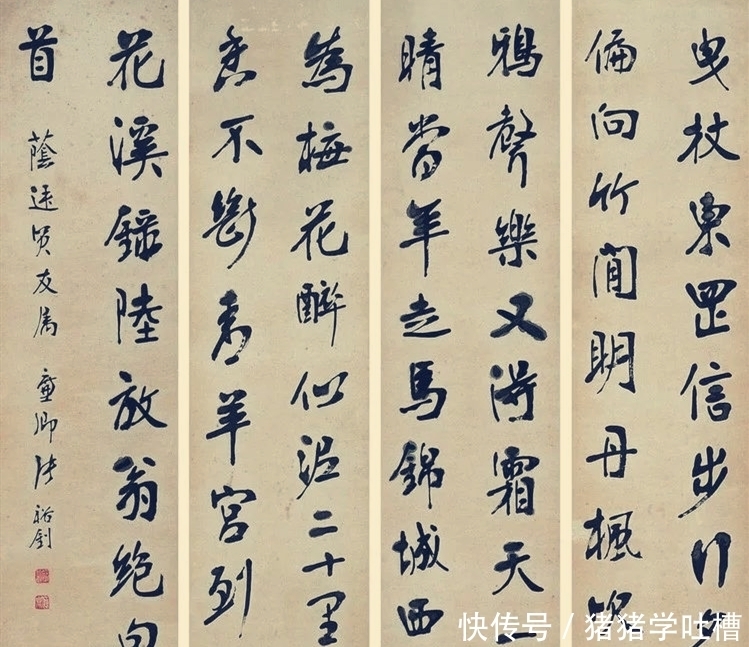 曳杖東岡信步行
偏向竹間明丹楓
鴉聲樂又得霜天一
晴當年走馬錦城西
為梅花醉似泥二十里
香不斷青羊宮到
花溪錄陸放翁絕句
首
蔭 賢友屬 廉卿張裕釗
快传号 / 猪猪学吐槽